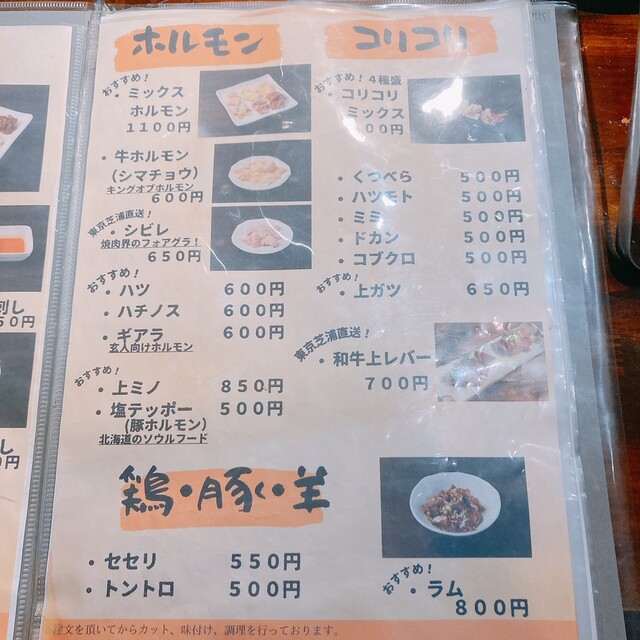 ホルモン
おすすめ！
・ミックス
ホルモン
1100円
・牛ホルモン
(シマチョウ)
キングオブホルモン
600円
東京芝浦直送！
・シビレ
焼肉界のフォアグラ！
650円
おすすめ！
・ハツ 600円
・ハチノス 600円
・ギアラ 600円
玄人向けホルモン
おすすめ！
・上ミノ 850円
・塩テッポー 500円
(豚ホルモン)
北海道のソウルフード
コリコリ
おすすめ！4種盛
・コリコリ
ミックス
00円
・くつべら 500円
・ハツモト 500円
・ミミ 500円
・ドカン 500円
・コブクロ 500円
おすすめ！
・上ガツ 650円
東京芝浦直送！
・和牛上レバー
700円
鶏・豚・羊
・セセリ 550円
・トントロ 500円
おすすめ！
・ラム
800円
注文を頂いてからカット、味付け、調理を行っております。
刺し
50円
し
0円